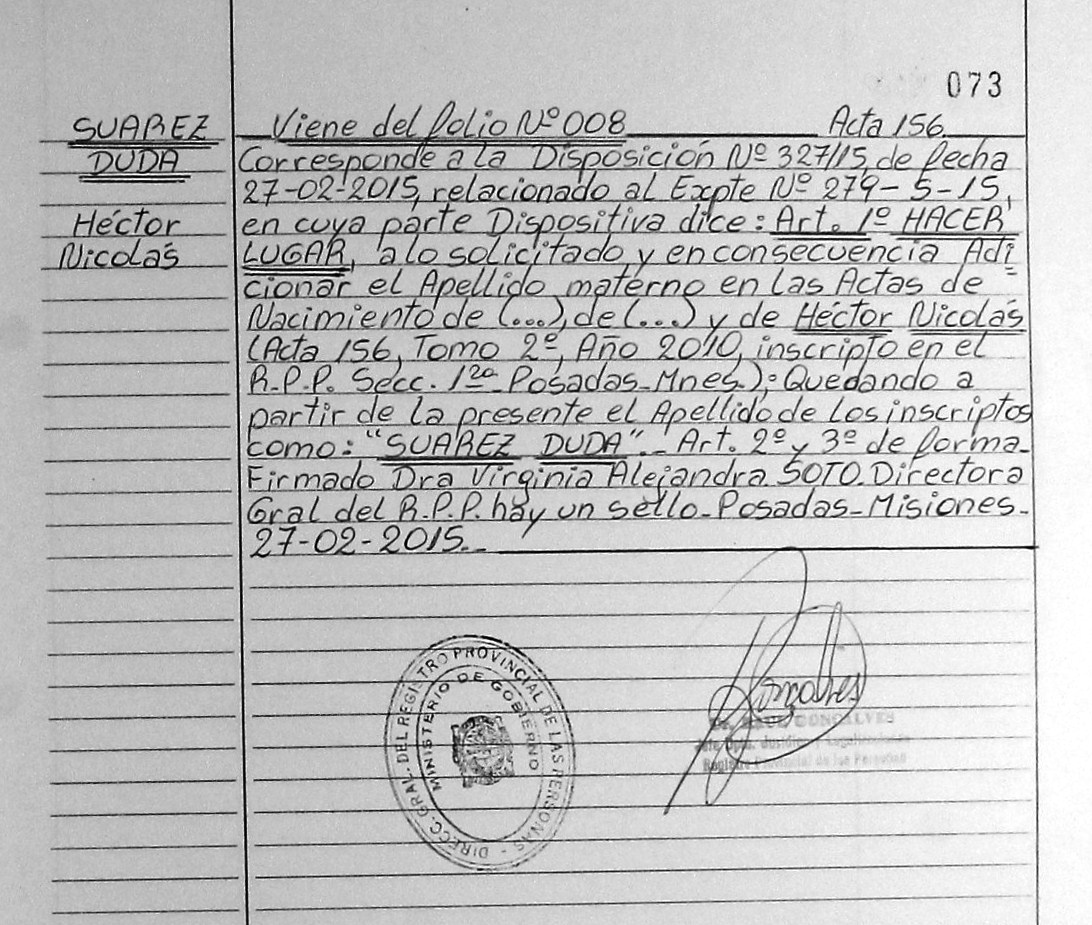 073
SUAREZ
DUDA
Héctor
Nicolás
Viene del folio Nº 008 Acta 156
Corresponde a la Disposición Nº 327/15, de fecha
27-02-2015, relacionado al Expte Nº 279-S-15,
en cuya parte Dispositiva dice: Art. 1º HACER
LUGAR, a lo solicitado y en consecuencia Adi
cionar el Apellido materno en las Actas de
Nacimiento de (...), de (...) y de Héctor Nicolás
(Acta 156, Tomo 2º, Año 2010, inscripto en el
R.P.P. Secc. 1ra Posadas-Mnes.); Quedando a
partir de la presente el Apellido de los inscriptos
como: "SUAREZ DUDA".- Art. 2º y 3º de forma-
Firmado Dra Virginia Alejandra SOTO. Directora
Gral del R.P.P. hay un sello-Posadas-Misiones-
27-02-2015.-
DIRECC. GRAL DEL REGISTRO PROVINCIAL DE LAS PERSONAS -
MINISTERIO DE GOBIERNO
GONCALVES
Registro Provincial de las Personas